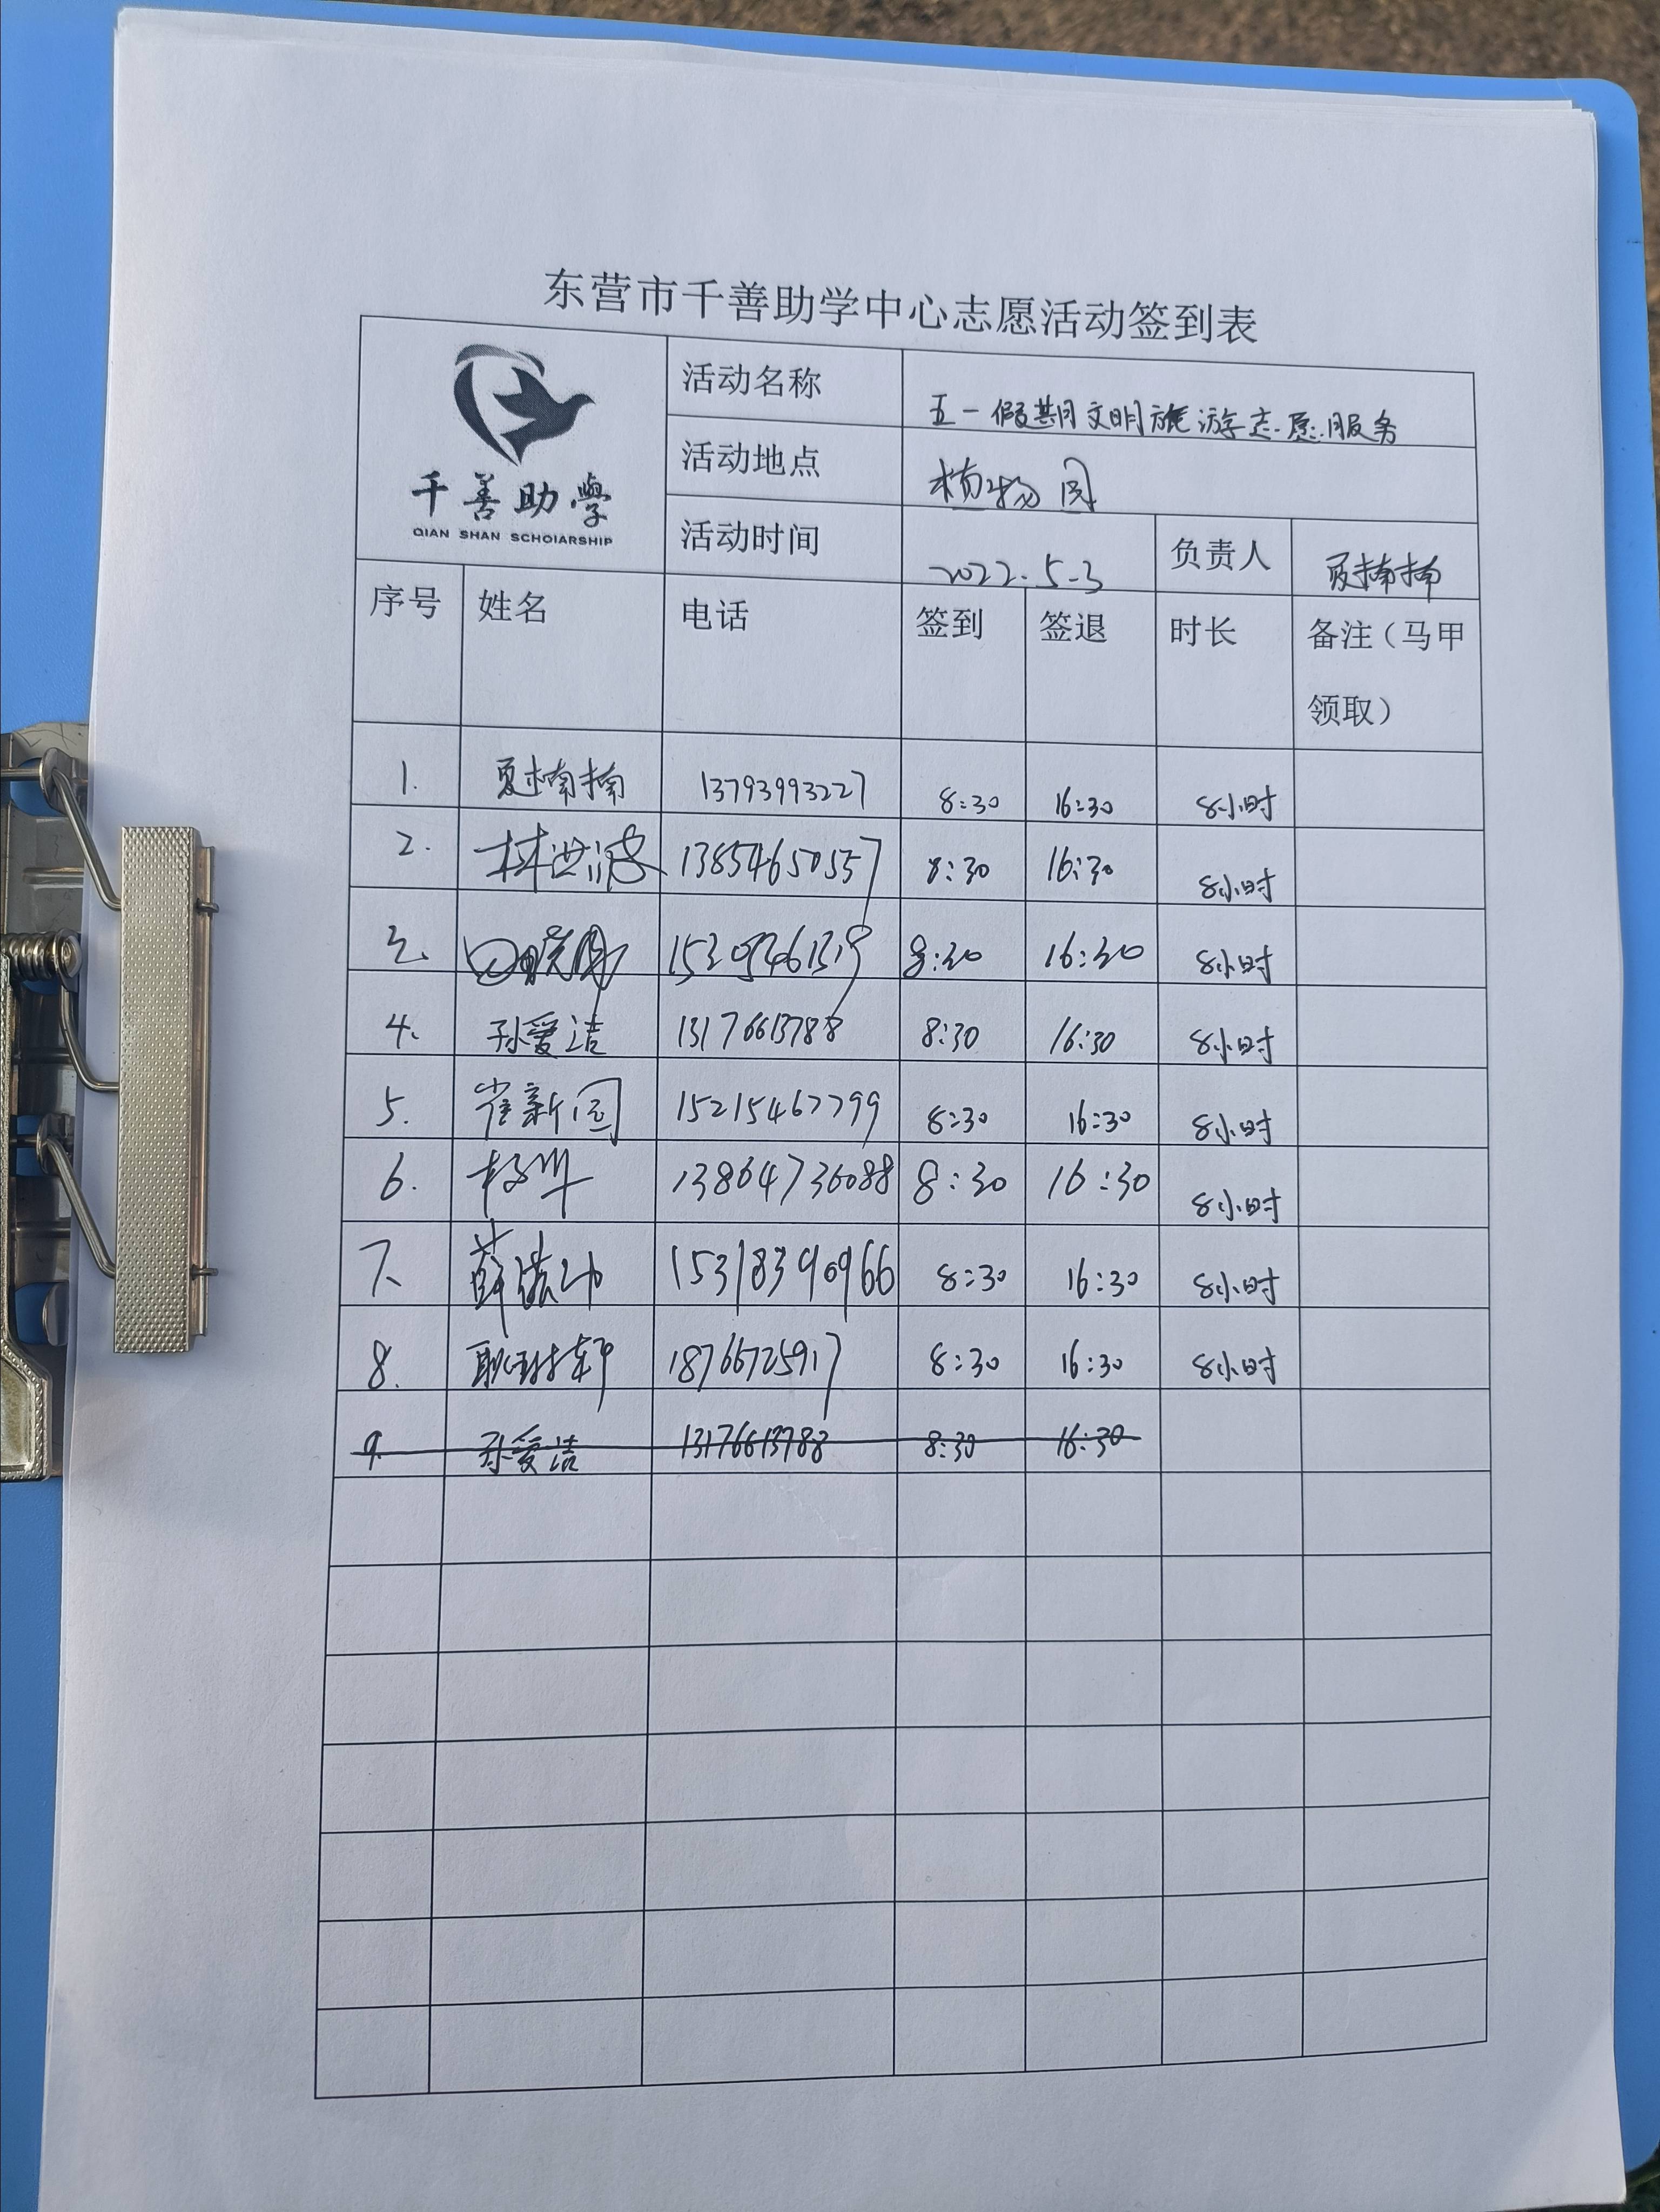 东营市千善助学中心志愿活动签到表
千善助學
QIAN SHAN SCHOIARSHIP
活动名称 五一假期文明旅游志愿服务
活动地点 植物园
活动时间 2022.5.3 负责人 夏楠楠
序号 姓名 电话 签到 签退 时长 备注（马甲
领取）
1. 夏楠楠 13793993227 8:30 16:30 8小时
2. 林洪波 13854650557 8:30 16:30 8小时
3. 8:30 16:30 8小时
4. 孙爱洁 13176613788 8:30 16:30 8小时
5. 崔新园 15215467799 8:30 16:30 8小时
6. 13864736088 8:30 16:30 8小时
7. 15318390966 8:30 16:30 8小时
8. 18766725917 8:30 16:30 8小时
9. 孙爱洁 13176613788 8:30 16:30